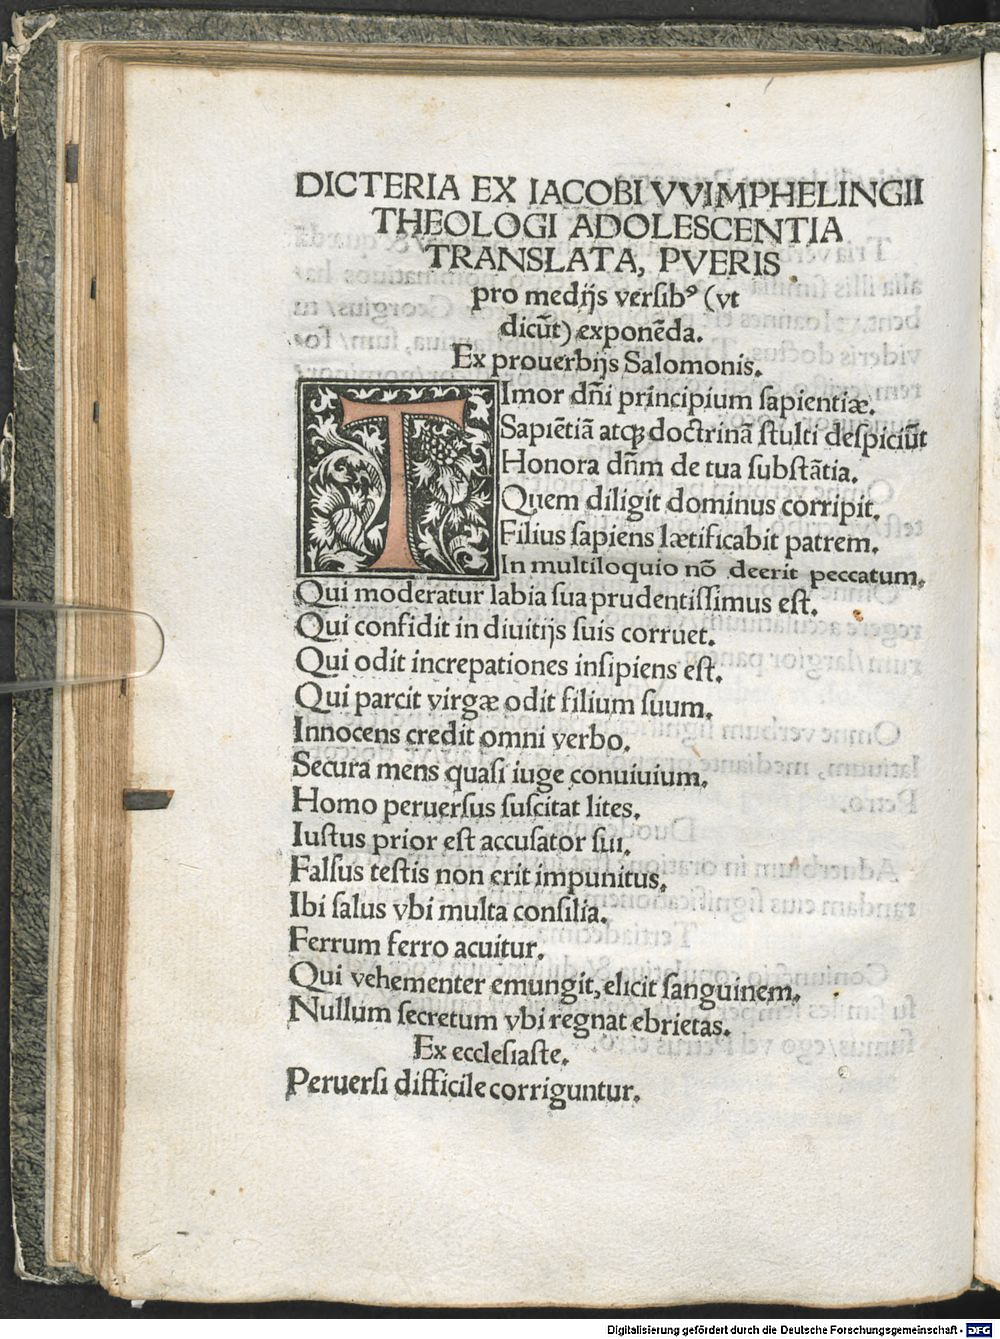 DICTERIA EX IACOBI VVIMPHELINGII
THEOLOGI ADOLESCENTIA
TRANSLATA, PVERIS
pro medijs versibꝰ (vt
dicūt) exponēda.
Ex prouerbijs Salomonis.
TImor dñi principium sapientiæ.
Sapiētiā atqꝫ doctrinā stulti despiciūt
Honora dñm de tua substātia.
Quem diligit dominus corripit.
Filius sapiens lætificabit patrem.
In multiloquio nō deerit peccatum.
Qui moderatur labia sua prudentissimus est.
Qui confidit in diuitijs suis corruet.
Qui odit increpationes insipiens est.
Qui parcit virgæ odit filium suum.
Innocens credit omni verbo.
Secura mens quasi iuge conuiuium.
Homo peruersus suscitat lites.
Iustus prior est accusator sui.
Falsus testis non erit impunitus.
Ibi salus vbi multa consilia.
Ferrum ferro acuitur.
Qui vehementer emungit, elicit sanguinem.
Nullum secretum vbi regnat ebrietas.
Ex ecclesiaste.
Peruersi difficile corriguntur.
Digitalisierung gefördert durch die Deutsche Forschungsgemeinschaft - DFG